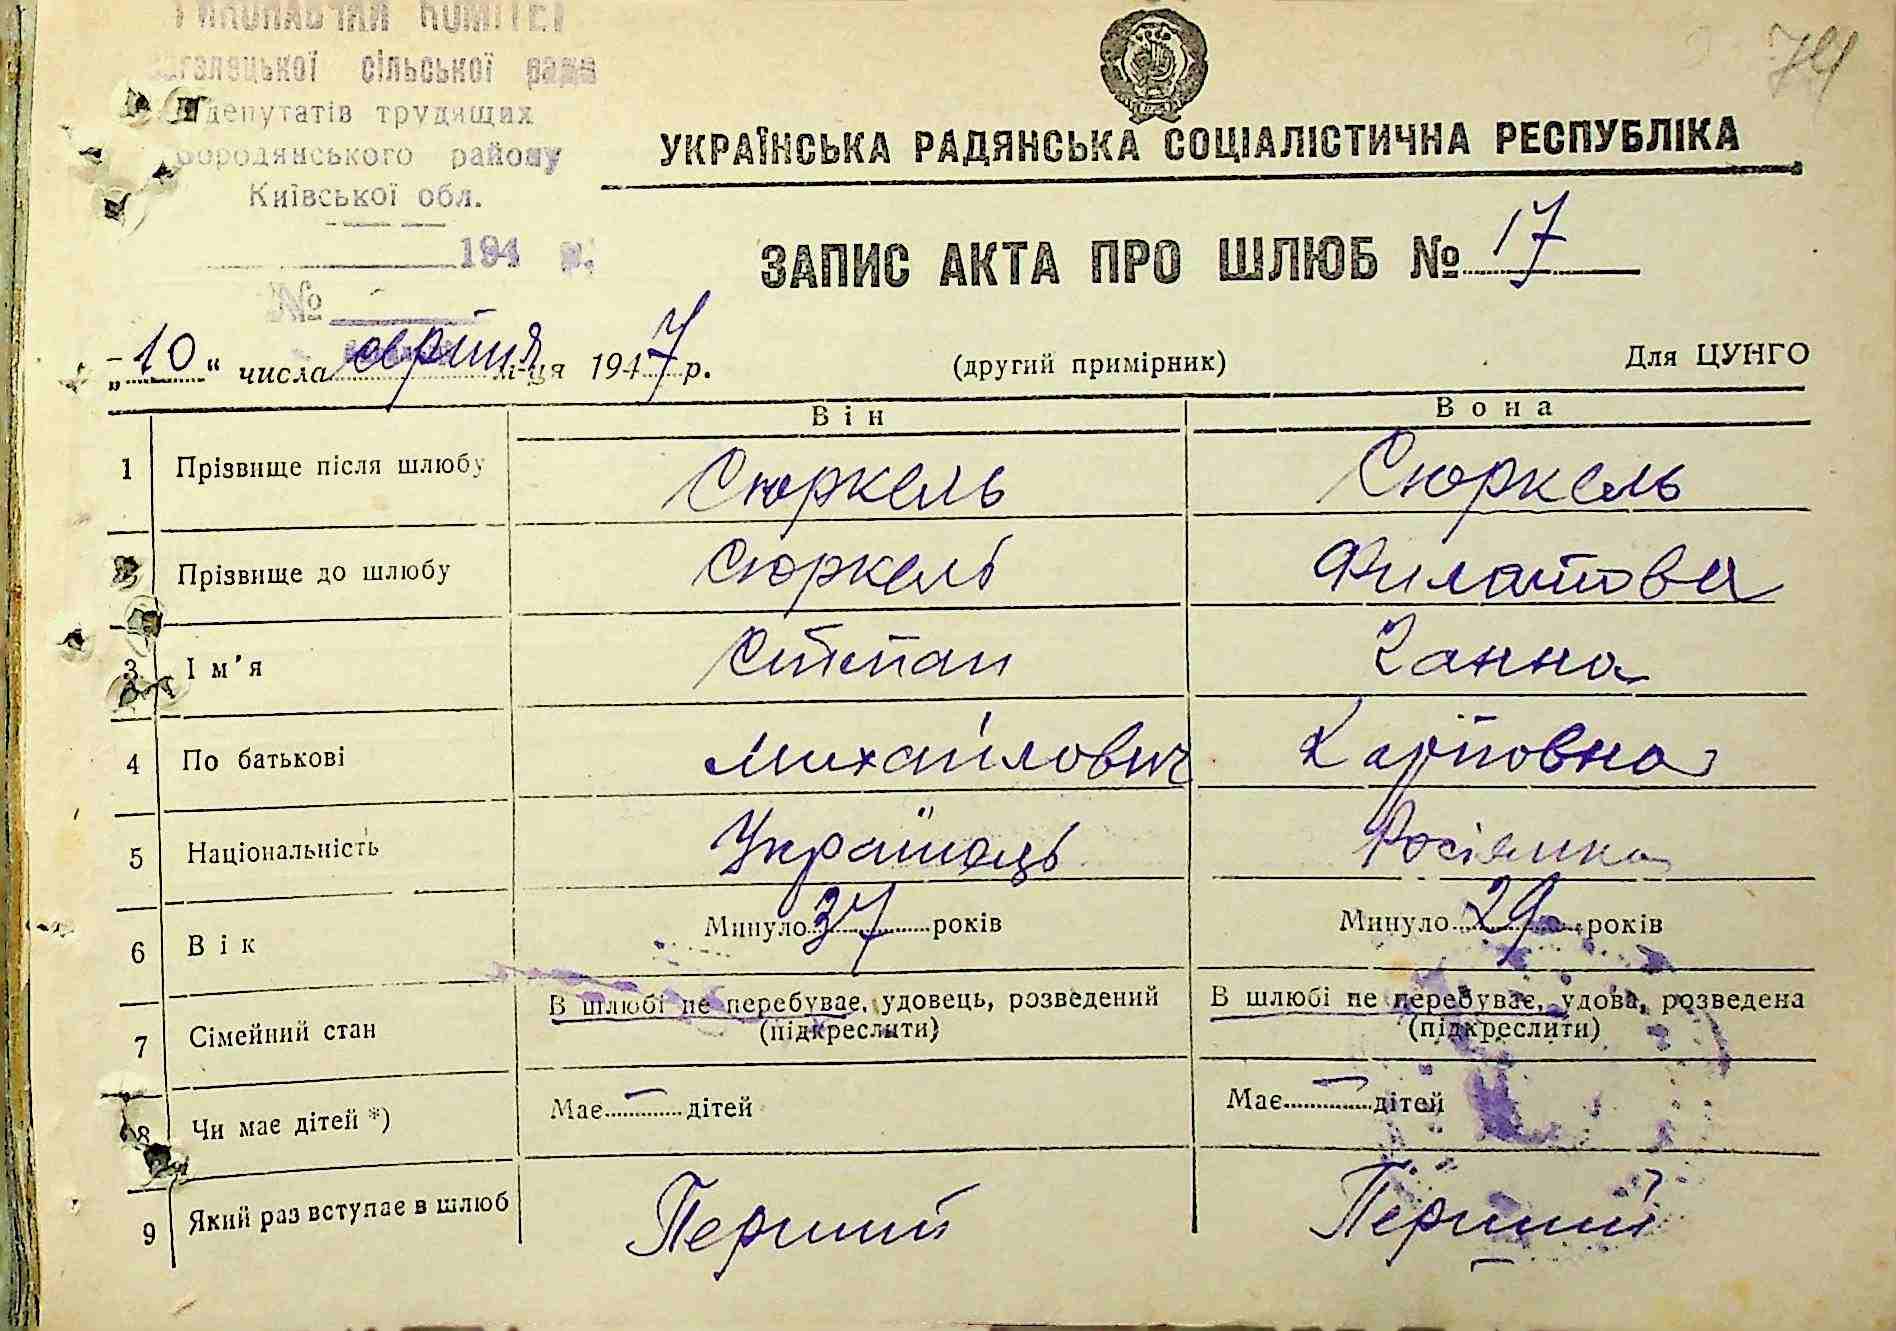 ВИКОНАВЧИЙ КОМІТЕТ
сільської ради
депутатів трудящих
Бородянського району
Київської обл.
194 р.
№
74
УКРАЇНСЬКА РАДЯНСЬКА СОЦІАЛІСТИЧНА РЕСПУБЛІКА
ЗАПИС АКТА ПРО ШЛЮБ № 17
„10“ числа серпня м-ця 1947 р. (другий примірник) Для ЦУНГО
Він Вона
1 Прізвище після шлюбу Сюркель Сюркель
2 Прізвище до шлюбу Сюркель Филатова
3 Ім'я Степан Ганна
4 По батькові Михайлович Карповна
5 Національність Українець Росіянка
6 Вік Минуло 37 років Минуло 29 років
7 Сімейний стан В шлюбі не перебуває, удовець, розведений (підкреслити) В шлюбі не перебуває, удова, розведена (підкреслити)
8 Чи має дітей *) Має — дітей Має — дітей
9 Який раз вступає в шлюб Перший Перший